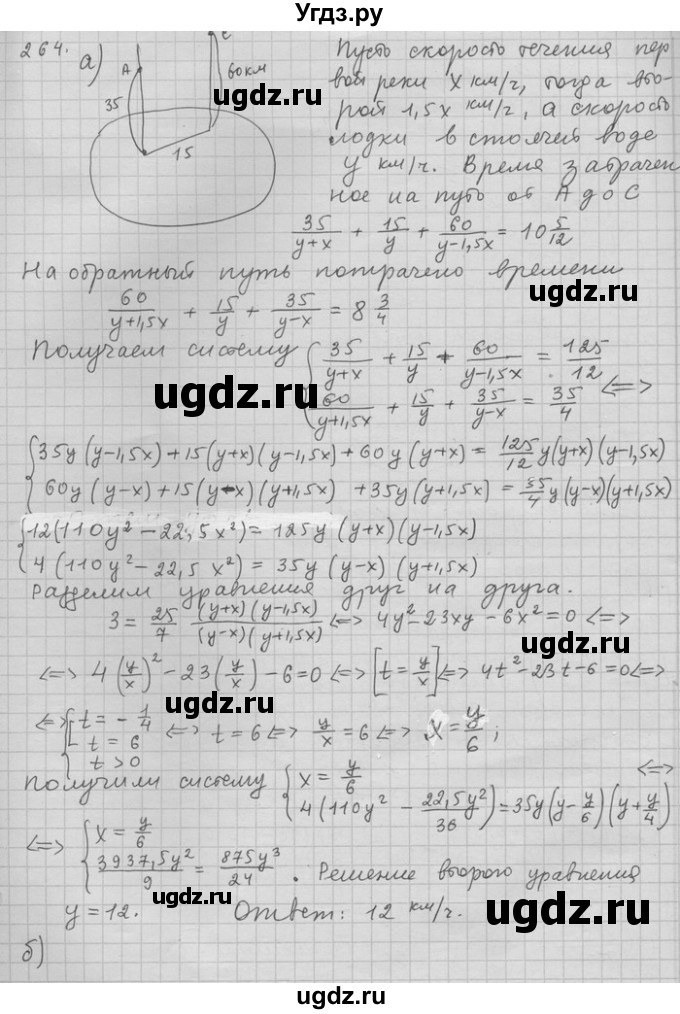 Угдз.ру
264. а) A C 60км 35 15
Пусть скорость течения пер
вой реки x км/ч, тогда вто-
рой 1,5x км/ч, а скорость
лодки в стоячей воде
y км/ч. Время затрачен
ное на путь от A до C
35/(y+x) + 15/y + 60/(y-1,5x) = 10 5/12
На обратный путь потрачено времени
60/(y+1,5x) + 15/y + 35/(y-x) = 8 3/4
Получаем систему { 35/(y+x) + 15/y + 60/(y-1,5x) = 125/12
60/(y+1,5x) + 15/y + 35/(y-x) = 35/4 <=>
{ 35y(y-1,5x)+15(y+x)(y-1,5x)+60y(y+x) = 125/12 y(y+x)(y-1,5x)
60y(y-x)+15(y-x)(y+1,5x) +35y(y+1,5x) = 35/4 y(y-x)(y+1,5x)
{ 12(110y² - 22,5x²) = 125y (y+x)(y-1,5x)
4(110y² - 22,5x²) = 35y (y-x)(y+1,5x)
Разделим уравнения друг на друга.
3 = 25/7 (y+x)(y-1,5x)/((y-x)(y+1,5x)) <=> 4y²-23xy-6x²=0 <=>
<=> 4(y/x)² - 23(y/x) - 6=0 <=> [t = y/x] <=> 4t²-23t-6=0 <=>
<=> { [ t = -1/4 t = 6 t>0 <=> t=6 <=> y/x = 6 <=> x = y/6 ;
Получили систему { x = y/6 <=>
4(110y² - 22,5y²/36) = 35y(y - y/6)(y + y/4)
<=> { x = y/6
3937,5y²/9 = 875y³/24 . Решение второго уравнения
y = 12. Ответ: 12 км/ч.
б)
ugdz.ru
ugdz.ru
ugdz.ru
ugdz.ru
ugdz.ru
ugdz.ru
ugdz.ru
ugdz.ru
ugdz.ru
ugdz.ru
ugdz.ru